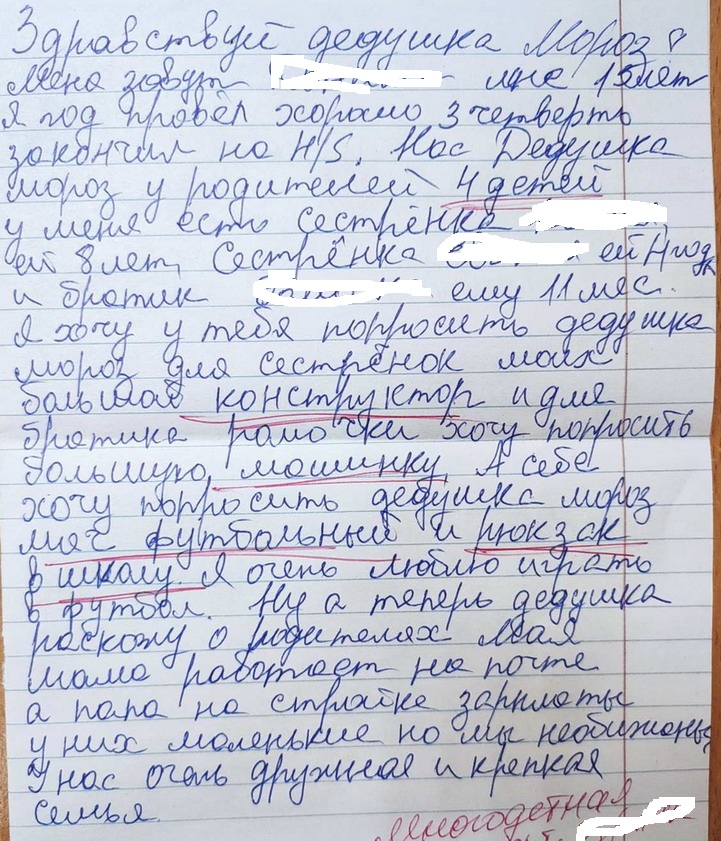 Здравствуй дедушка Мороз
Меня зовут мне 15 лет
Я год провёл хорошо 3 четверть
закончил на 4/5. Нас Дедушка
мороз у родителей 4 детей
у меня есть Сестрёнка
ей 8 лет, Сестрёнка ей 4 года
и братик ему 11 мес.
Я хочу у тебя попросить дедушка
мороз для сестрёнок моих
большой конструктор и для
братика хочу попросить
большую машинку А себе
хочу попросить дедушка мороз
мяч футбольный и рюкзак
в школу. Я очень люблю играть
в футбол. Ну а теперь дедушка
раскажу о родителях Моя
мама работает на почте
а папа на стройке зарплаты
у них маленькие но мы необижаны
У нас очень дружная и крепкая
семья.
Многодетная